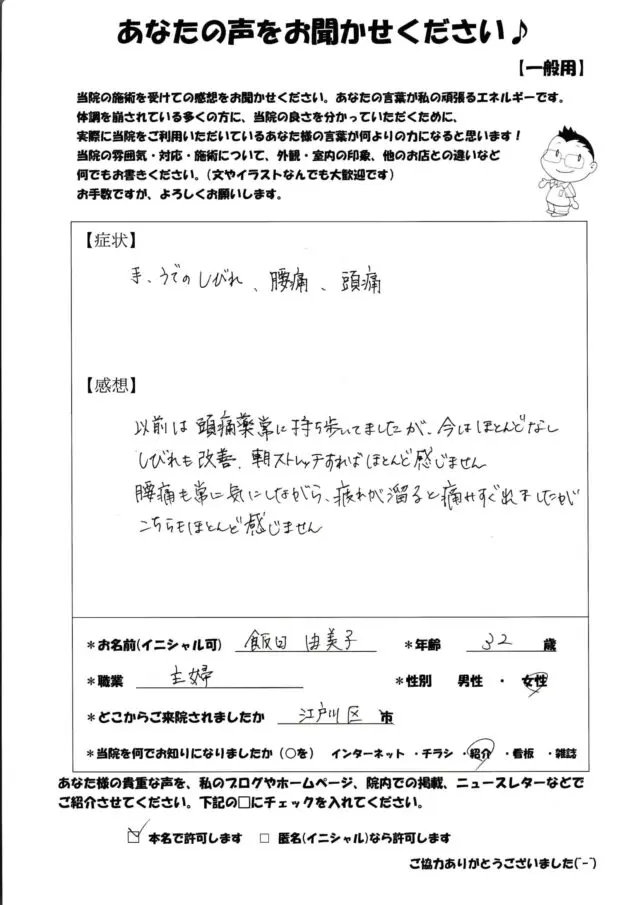 あなたの声をお聞かせください♪
【一般用】
当院の施術を受けての感想をお聞かせください。あなたの言葉が私の頑張るエネルギーです。
体調を崩されている多くの方に、当院の良さを分かっていただくために、
実際に当院をご利用いただいているあなた様の言葉が何よりの力になると思います！
当院の雰囲気・対応・施術について、外観・室内の印象、他のお店との違いなど
何でもお書きください。(文やイラストなんでも大歓迎です)
お手数ですが、よろしくお願いします。
【症状】
手、うでのしびれ、腰痛、頭痛
【感想】
以前は頭痛薬常に持ち歩いてましたが、今はほとんどなし
しびれも改善、朝ストレッチすればほとんど感じません
腰痛も常に気にしながら、疲れが溜ると痛みすぐ出ましたが
こちらもほとんど感じません
＊お名前(イニシャル可) 飯田 由美子 ＊年齢 32 歳
＊職業 主婦 ＊性別 男性 ・ 女性
＊どこからご来院されましたか 江戸川区 市
＊当院を何でお知りになりましたか（○を） インターネット ・チラシ ・紹介 ・看板 ・雑誌
あなた様の貴重な声を、私のブログやホームページ、院内での掲載、ニュースレターなどで
ご紹介させてください。下記の□にチェックを入れてください。
☑ 本名で許可します □ 匿名(イニシャル)なら許可します
ご協力ありがとうございました(^-^)